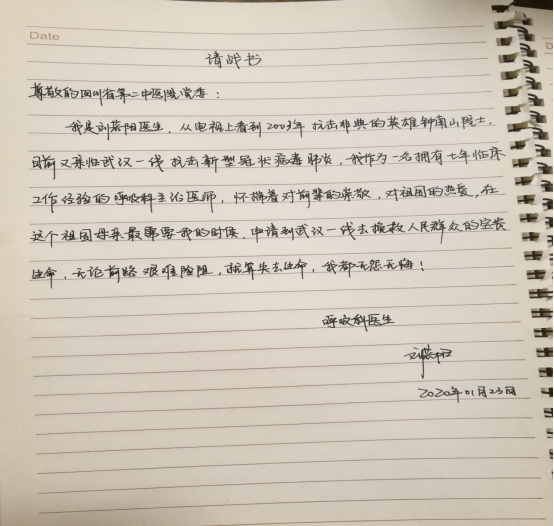 Date
请战书
尊敬的四川省第二中医院党委：
我是刘蓉阳医生，从电视上看到2003年抗击非典的英雄钟南山院士，
目前又亲临武汉一线抗击新型冠状病毒肺炎，我作为一名拥有七年临床
工作经验的呼吸科主治医师，怀揣着对前辈的崇敬，对祖国的热爱，在
这个祖国母亲最需要我的时候，申请到武汉一线去拯救人民群众的宝贵
生命，无论前路艰难险阻，就算失去生命，我都无怨无悔！
呼吸科医生
2020年01月23日